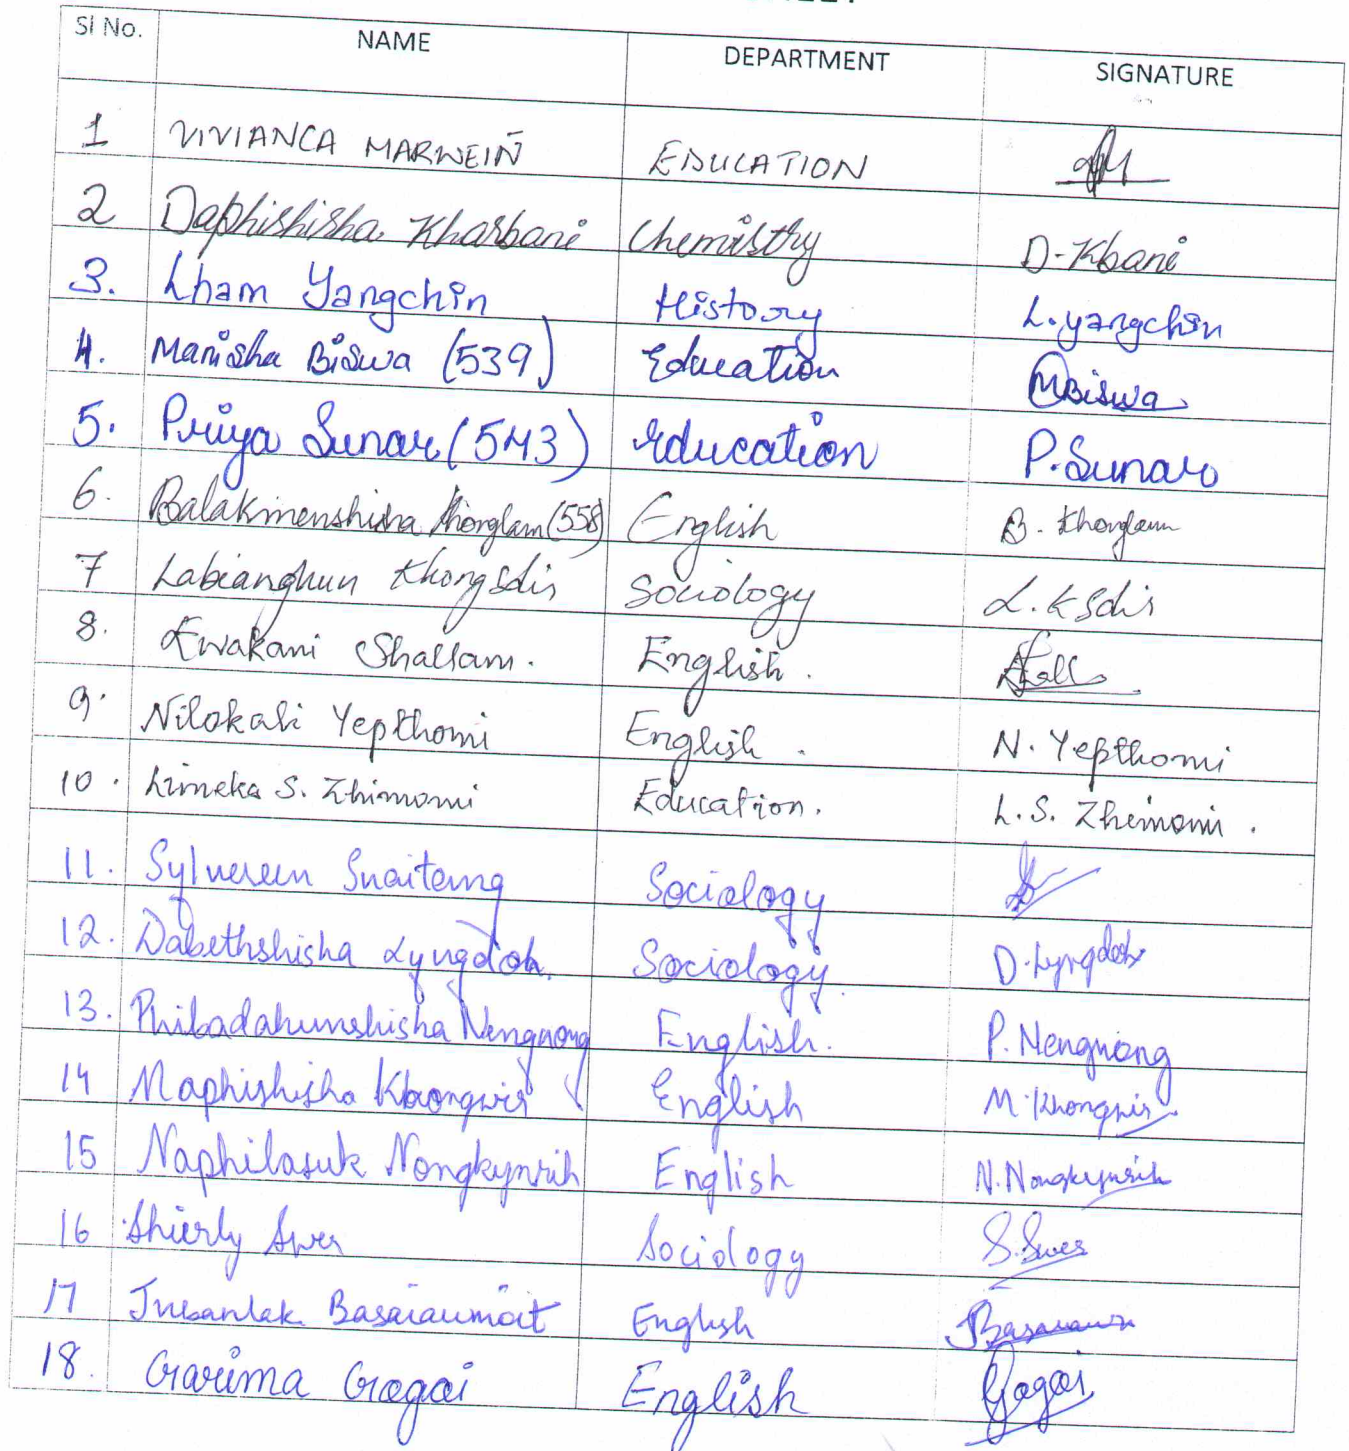 Sl No. NAME DEPARTMENT SIGNATURE
1 VIVIANCA MARWEIN EDUCATION
2 Daphishisha Kharbani Chemistry D-Kbani
3. Lham Yangchin History L.yangchin
4. Manisha Biswa (539) Education MBiswa
5. Priya Sunar (543) Education P.Sunar
6. Balakmenshisha Khonglam (558) English B. Khonglam
7 Labianghun Khongsdir Sociology L.Ksdir
8. Ewakani Shallam. English.
9. Nilokali Yepthomi English. N. Yepthomi
10. Limeka S. Zhimomi Education. L.S. Zhimomi.
11. Sylvereen Snaitang Sociology
12. Dabethshisha Lyngdoh. Sociology. D.Lyngdoh
13. Phibadahunshisha Nengnong English. P. Nengnong
14 Maphishisha Khongwir English M.Khongwir
15 Naphilasuk Nongkynrih English N.Nongkynrih
16 Shierly Swer Sociology S.Swer
17 Basaiawmoit English
18. Garima Gogoi English Gogoi